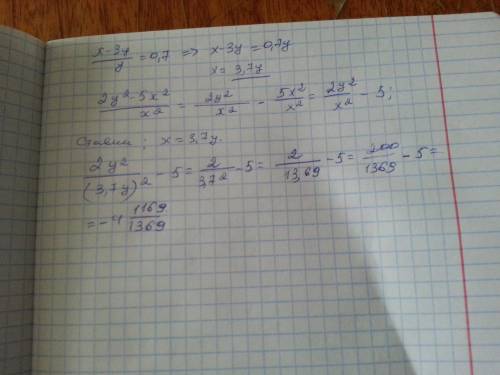 (x-3y)/y = 0,7 => x-3y = 0,7y
x = 3,7y
(2y²-5x²)/x² = 2y²/x² - 5x²/x² = 2y²/x² - 5;
x = 3,7y.
2y²/(3,7y)² - 5 = 2/3,7² - 5 = 2/13,69 - 5 = 200/1369 - 5 =
= -4 1169/1369